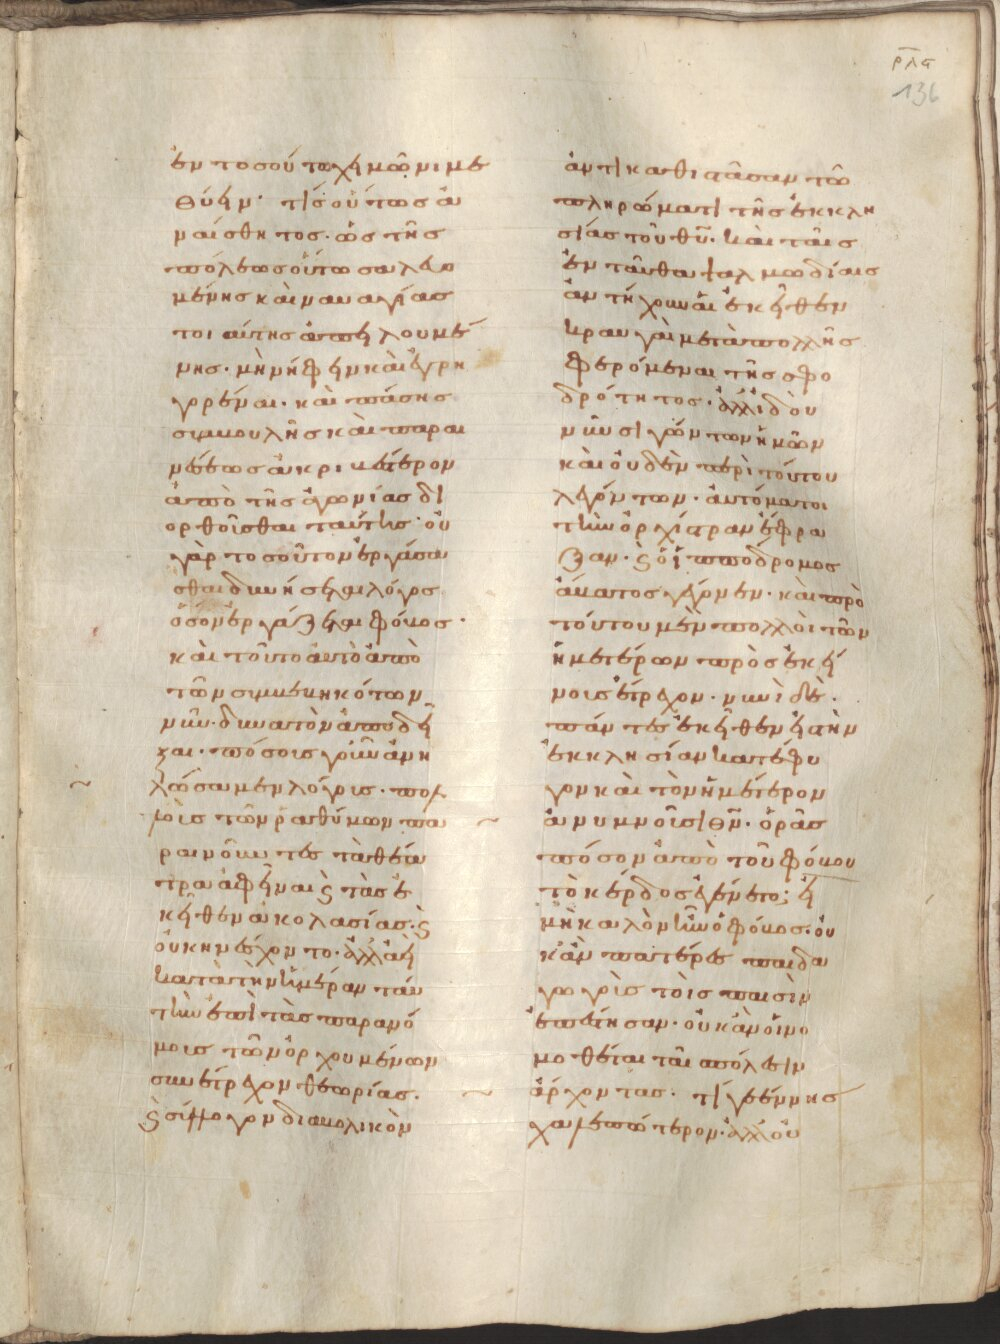 ρλς
136
ἐν τοσούτω χειμῶνι με
θύειν· τίς οὕτως ἀ
ναίσθητος· ὡς τῆς
πόλεως οὕτω σαλευο
μένης καὶ ναυαγίας
τοιαύτης ἀπειλουμέ
νης· μὴ νήφειν καὶ ἐγρη
γορέναι· καὶ πάσης
συμβουλῆς καὶ παραι
νέσεως ἀκριβέστερον
ἀπὸ τῆς ἀγωνίας δι
ορθοῦσθαι ταύτης· οὐ
γὰρ τοσοῦτον ἐργάσα
σθαι δυνήσεται λόγος
ὅσον ἐργάζεται φόβος·
καὶ τοῦτο αὐτὸ ἀπὸ
τῶν συμβεβηκότων
νῦν· δυνατὸν ἀποδεῖ
ξαι· πόσους γοῦν ἀνη
λώσαμεν λόγους· πολ
λοῖς τῶν ῥαθύμων πα
ραινοῦντες τὰ θέα
τρα ἀφεῖναι ϛ τὰς ἐ
κεῖθεν ἀκολασίας· ϛ
οὐκ ἠνέσχοντο· ἀλλ ἀεὶ
κατὰ τὴν ἡμέραν ταύ
την ἐπὶ τὰς παρανό
μους τῶν ὀρχουμένων
συνέτρεχον θεωρίας·
ϛ σύλλογον διαβολικὸν
ἀντικαθίστασαν τῶ
πληρώματι τῆς ἐκκλη
σίας τοῦ θῦ· καὶ ταῖς
ἐνταῦθα ψαλμωδίαις
ἀντήχουν αἱ ἐκεῖθεν
κραυγαὶ μετὰ πολλῆς
φερόμεναι τῆς σφο
δρότητος· ἀλλ ἰδοὺ
νῦν σιγώντων ἡμῶν
καὶ οὐδὲν περὶ τούτου
λεγόντων· αὐτόματοι
τὴν ὀρχίστραν ἔφρα
ξαν· ϛ ὁ ἱππόδρομος
ἄβατος γέγονεν· καὶ πρὸ
τούτου μὲν πολλοὶ τῶν
ἡμετέρων πρὸς ἐκεί
νους ἔτρεχον· νυνὶ δὲ·
πάντες ἐκεῖθεν εἰς τὴν
ἐκκλησίαν κατέφυ
γον καὶ τὸν ἡμέτερον
ἀνυμνοῦσι θν· ὁρᾶς
πόσον ἀπὸ τοῦ φόβου
τὸ κέρδος ἐγένετο; εἰ
μὴ καλὸν ἦν ὁ φόβος· οὐ
κἂν πατέρες παιδα
γωγοὺς τοῖς παισὶν
ἐπέστησαν· οὐκ ἂν οἱ νο
μοθέται ταῖς πόλεσιν
ἄρχοντας· τί γεέννης
χαλεπώτερον· ἀλλ οὐ